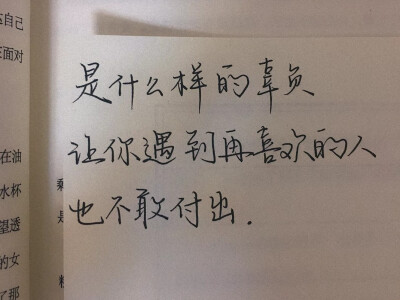 是什么样的辜负
让你遇到再喜欢的人
也不敢付出.
自己
面对
在油
水杯
望透
的女
了那
乘
是